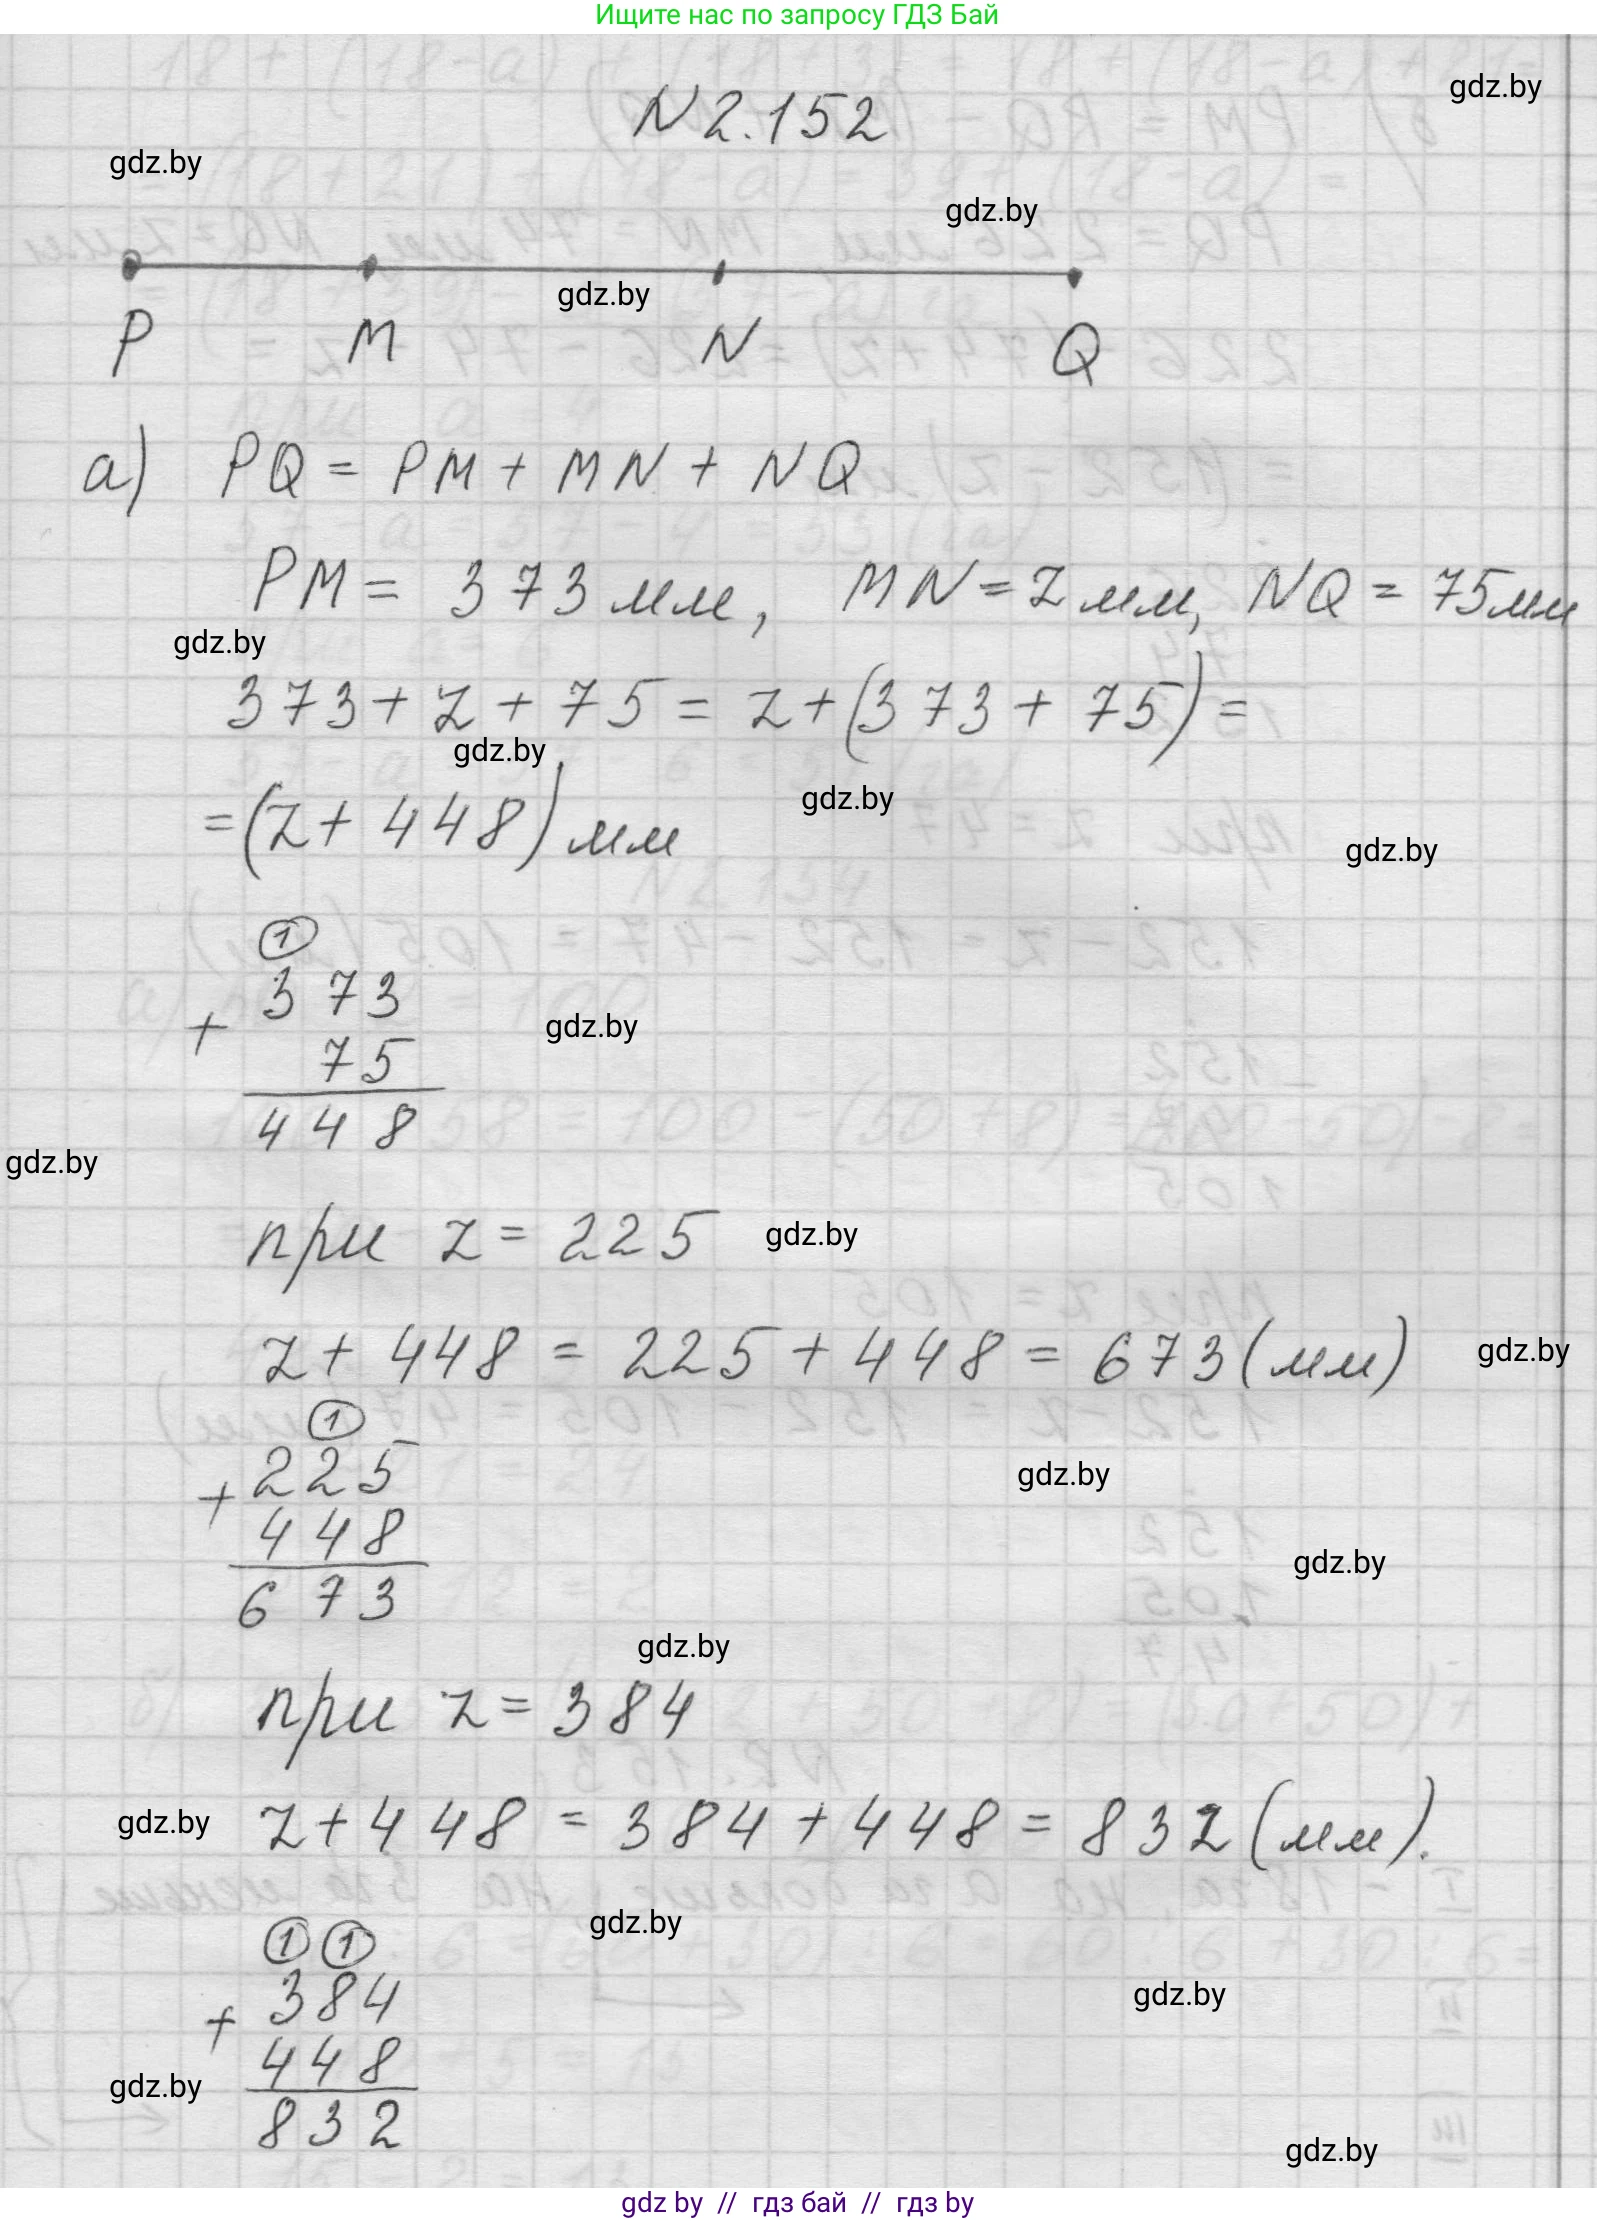 Ищите нас по запросу ГДЗ Бай
gdz.by
N 2.152
gdz.by
gdz.by
gdz.by
P M N Q
а) PQ = PM + MN + NQ
PM = 373 мм, MN = z мм, NQ = 75 мм
gdz.by
373 + z + 75 = z + (373 + 75) =
gdz.by
gdz.by
= (z + 448) мм
gdz.by
1
373
+
gdz.by
75
448
gdz.by
при z = 225
gdz.by
z + 448 = 225 + 448 = 673 (мм)
gdz.by
1
225
+
gdz.by
448
gdz.by
673
gdz.by
при z = 384
gdz.by
z + 448 = 384 + 448 = 832 (мм).
gdz.by
1 1
384
gdz.by
+
448
gdz.by
832
gdz.by
gdz by // гдз бай // гдз by